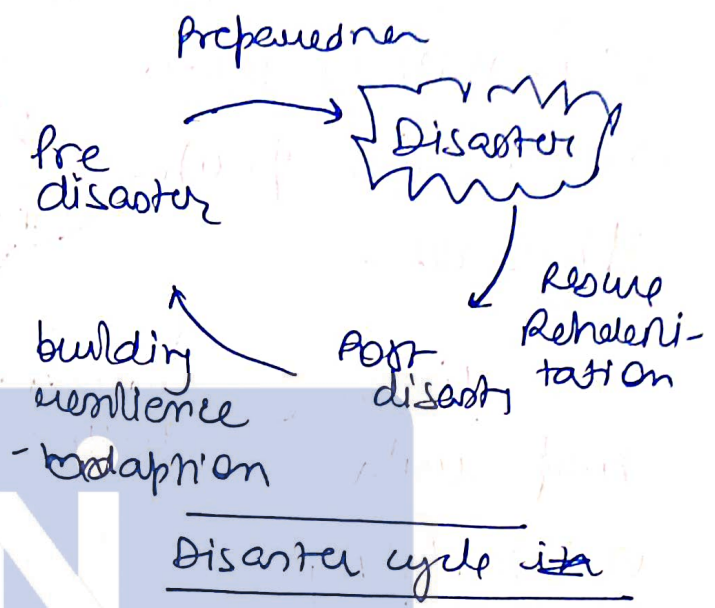 Preparedness
Disaster
Pre
disaster
Rescue
Rehabili-
tation
Post
disaster
building
resilience
- adaption
Disaster cycle